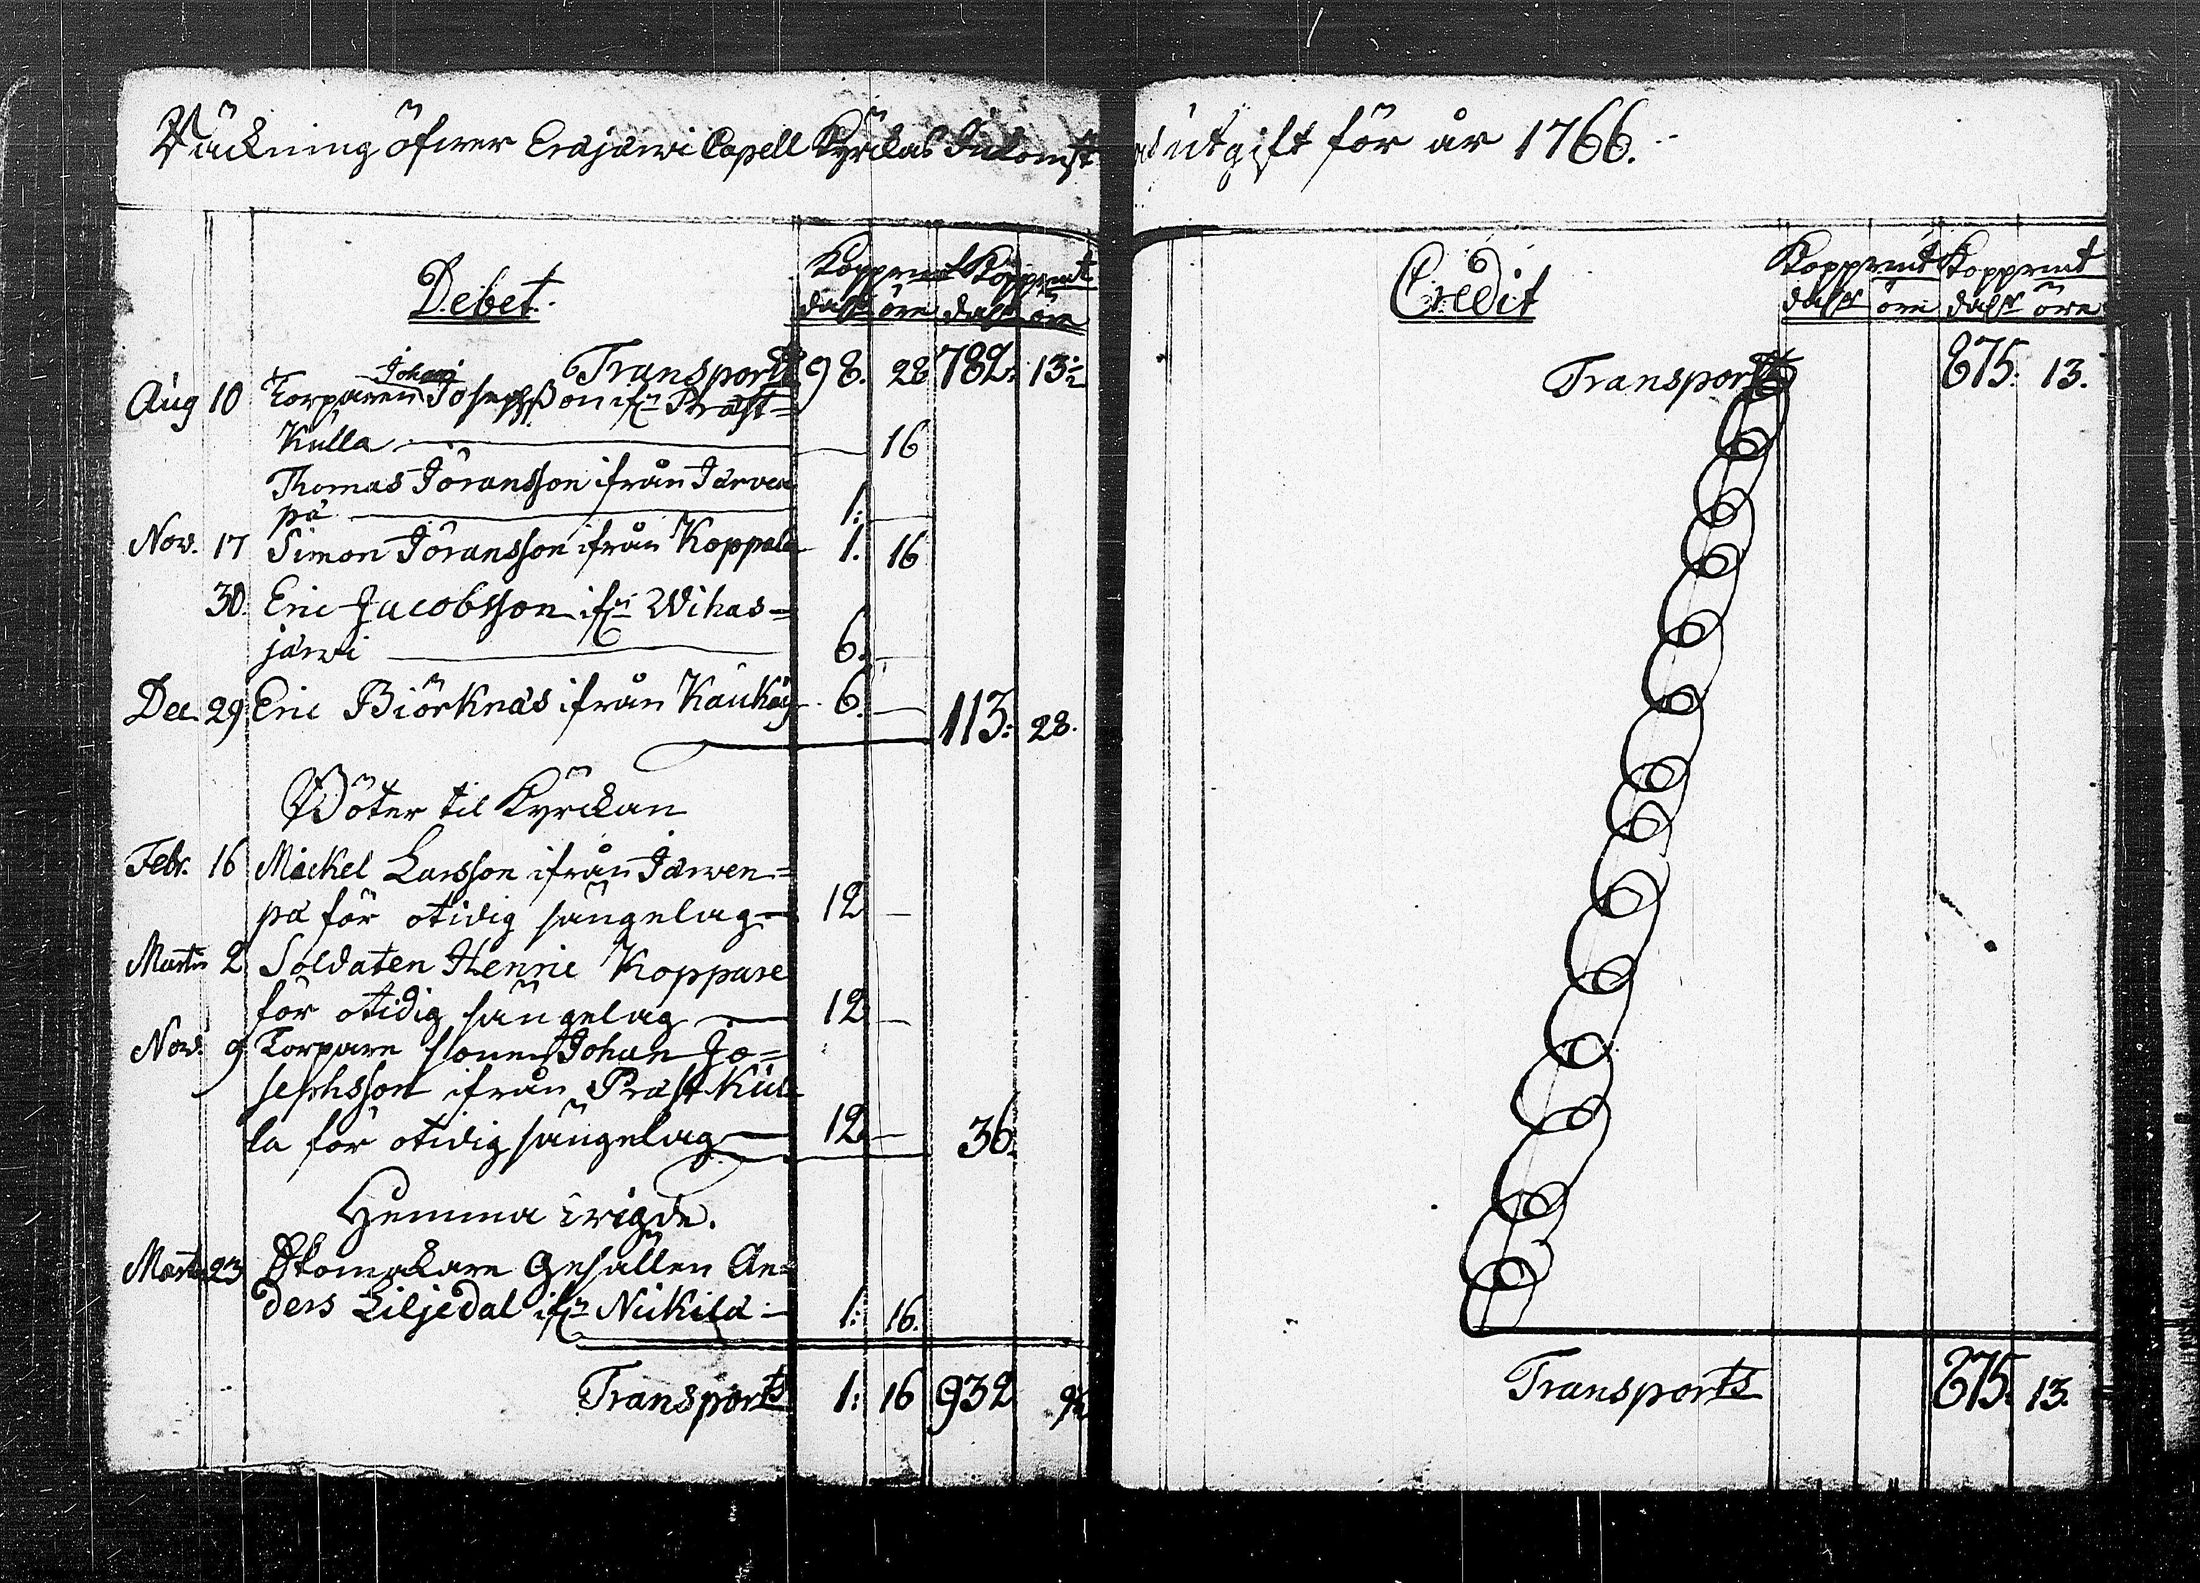 Räckning öfwer Erajärwi Capell Kyrckas Inkomst och utgift för år 1766.
Debet. Kopprmt Kopprmt
dalr öre dalr öre
Transport 98. 28 782. 13½
Johan
Aug 10 Torparen Josephsson ifn Präst=
Kulla 16
Thomas Jöransson ifrån Järven
pä 1.
Nov. 17 Simon Jöransson ifrån Koppala 1. 16
30. Eric Jacobsson ifn Wihas=
järwi 6.
Dec. 29 Eric Biörknäs ifrån 6. 113. 28.
Böter til Kyrckan
Febr. 16 Mickel Larsson ifrån Järwen=
pä för otidig sängelag 12
Marti 2 Soldaten Henric Koppare
för otidig sängelag 12
Nov. 9 Torpare sonen Johan Jo=
sephsson ifrån Präst Kul
la för otidig sängelag 12 36.
Hemma wigde.
Marti 23 Skomakare Gesällen An=
ders Liljedal ifn Nickilä 1: 16.
Transports 1: 16 932 9½
Credit Kopprmt Kopprmt
dalr öre dalr öre
Transport 875. 13.
Transports 875. 13.